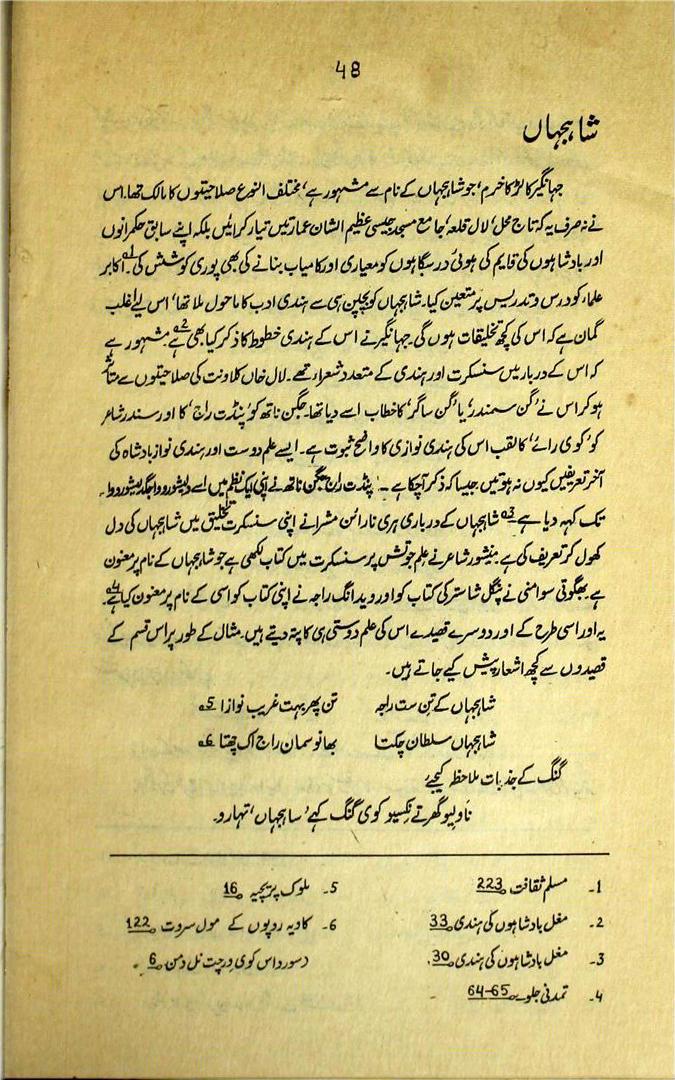 48
شاہجہاں
جہانگیر کا لڑکا خرم، جو شاہجہاں کے نام سے مشہور ہے، مختلف النوع صلاحیتوں کا مالک تھا۔ اس
نے نہ صرف یہ کہ تاج محل، لال قلعہ، جامع مسجد جیسی عظیم الشان عمارتیں تیار کرائیں بلکہ اپنے سابق حکمرانوں
اور بادشاہوں کی قایم کی ہوئی درسگاہوں کو معیاری اور کامیاب بنانے کی بھی پوری کوشش کی۔1 اکابر
علماء کو درس و تدریس پر متعین کیا۔ شاہجہاں کو بچپن ہی سے ہندی ادب کا ماحول ملا تھا، اس لیے اغلب
گمان ہے کہ اس کی کچھ تخلیقات ہوں گی۔ جہانگیر نے اس کے ہندی خطوط کا ذکر کیا بھی ہے2 مشہور ہے
کہ اس کے دربار میں سنسکرت اور ہندی کے متعدد شعراء تھے۔ لال خاں کلاونت کی صلاحیتوں سے متاثر
ہو کر اس نے 'گن سمندر' یا 'گن ساگر' کا خطاب اسے دیا تھا۔ جگن ناتھ کو 'پنڈت راج' کا اور سندر شاعر
کو 'کوی رائے' کا لقب اس کی ہندی نوازی کا واضح ثبوت ہے۔ ایسے علم دوست اور ہندی نواز بادشاہ کی
آخر تعریفیں کیوں نہ ہوتیں جیسا کہ ذکر آچکا ہے ۔ پنڈت راج جگن ناتھ نے اپنی ایک نظم میں اسے دلیشورو واجگدیشوروا۔
تک کہہ دیا ہے3 شاہجہاں کے درباری ہری نارائن مشرا نے اپنی سنسکرت تخلیق میں شاہجہاں کی دل
کھول کر تعریف کی ہے۔ منیشور شاعر نے علم جوتش پر سنسکرت میں کتاب لکھی ہے جو شاہجہاں کے نام پر معنون
ہے۔ بھگوتی سوامنی نے پنگل شاستر کی کتاب کو اور ویدانگ راجہ نے اپنی کتاب کو اسی کے نام پر معنون کیا ہے۔4
یہ اور اسی طرح کے اور دوسرے قصیدے اس کی علم دوستی ہی کا پتہ دیتے ہیں۔ مثال کے طور پر اس قسم کے
قصیدوں سے کچھ اشعار پیش کیے جاتے ہیں۔
شاہجہاں کے تِن ست راجہ تن پھر بہت غریب نوازا 5
شاہجہاں سلطان چکتا بھانو سمان راج اک چھتا 6
گنگ کے جذبات ملاحظہ کیجیے
ناو لیو گھرتے نکسیو کوی گنگ کہے 'ساہجہاں' تہارو۔
1۔ مسلم ثقافت 223
2۔ مغل بادشاہوں کی ہندی 33
3۔ مغل بادشاہوں کی ہندی 30۔
4۔ تمدنی جلوے 64-65
5۔ ملوک پریچیہ 16
6۔ کاویہ روپوں کے مول سروت 122
دسورداس کوی ورچت نل دمن 6۔